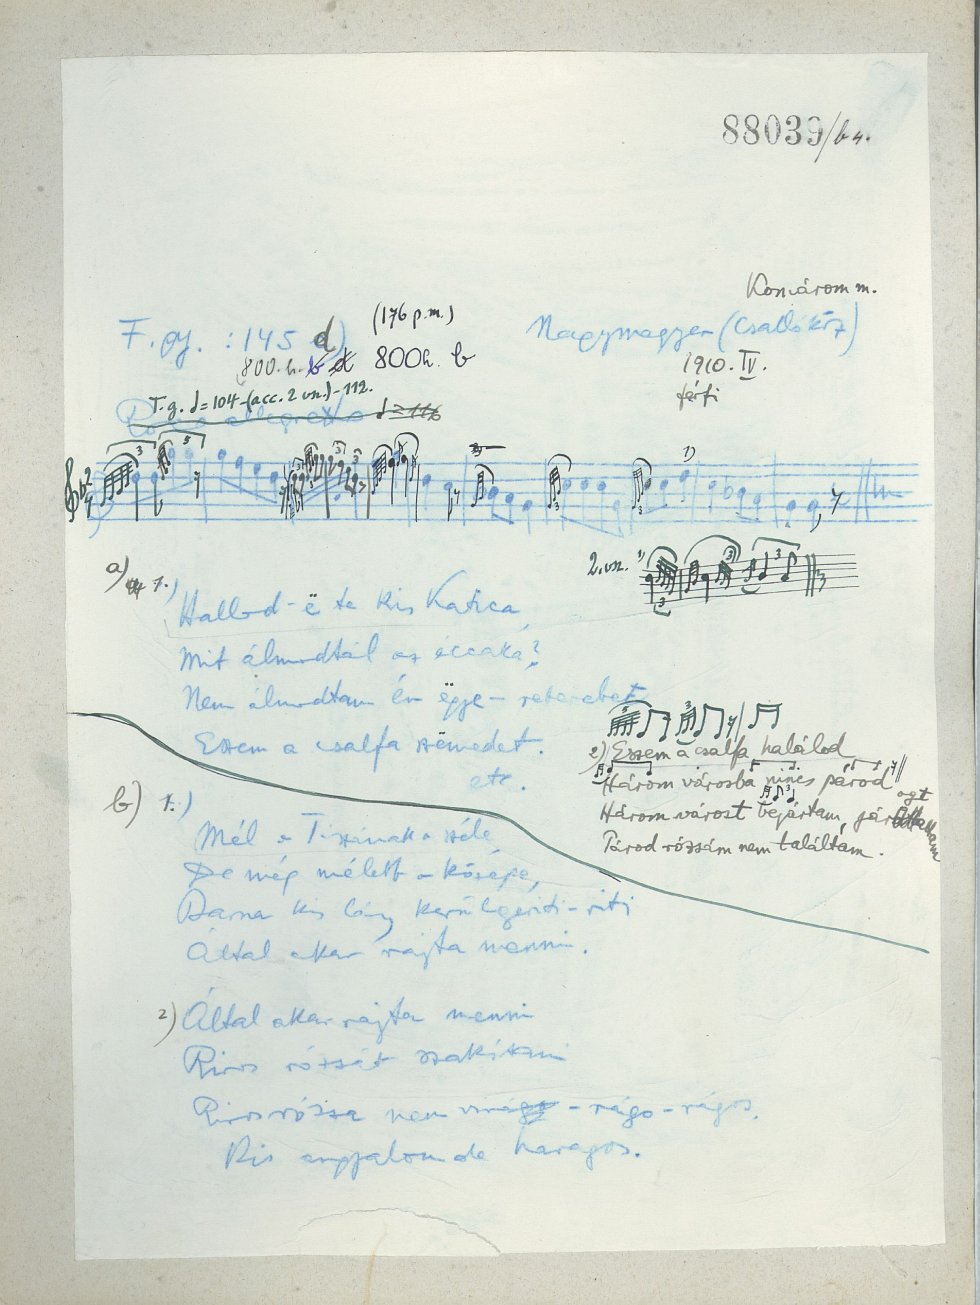 88039/b4.
Komárom m.
F. gy. : 145 d)
(176 p.m.)
Nagymegyer (Csallóköz)
800. h. b d 800h. b
1910. IV.
férfi
T.g. d = 104-(acc. 2 vn.)-112.
Poco allegretto = 116
3
5
1)
2. vn. 1)
a) 1.)
Hallod-ë te kis Katica,
Mit álmodtál az éccaka?
Nem álmodtam én ëgye- retenebet
Eszem a csalfa szëmedet.
etc.
2) Eszem a csalfa halálod
Három városba nincs párod
Három várost bejártam, jártam
Párod rózsám nem találtam.
b) 1.)
Mél a Tiszának a széle,
De még mélebb a közepe,
Barna kis lány kerülgeriti-riti
Által akar rajta menni.
2) Által akar rajta menni
Piros rózsát szakítani
Piros rózsa nem virágo-rágo-rágos,
Kis angyalom de haragos.